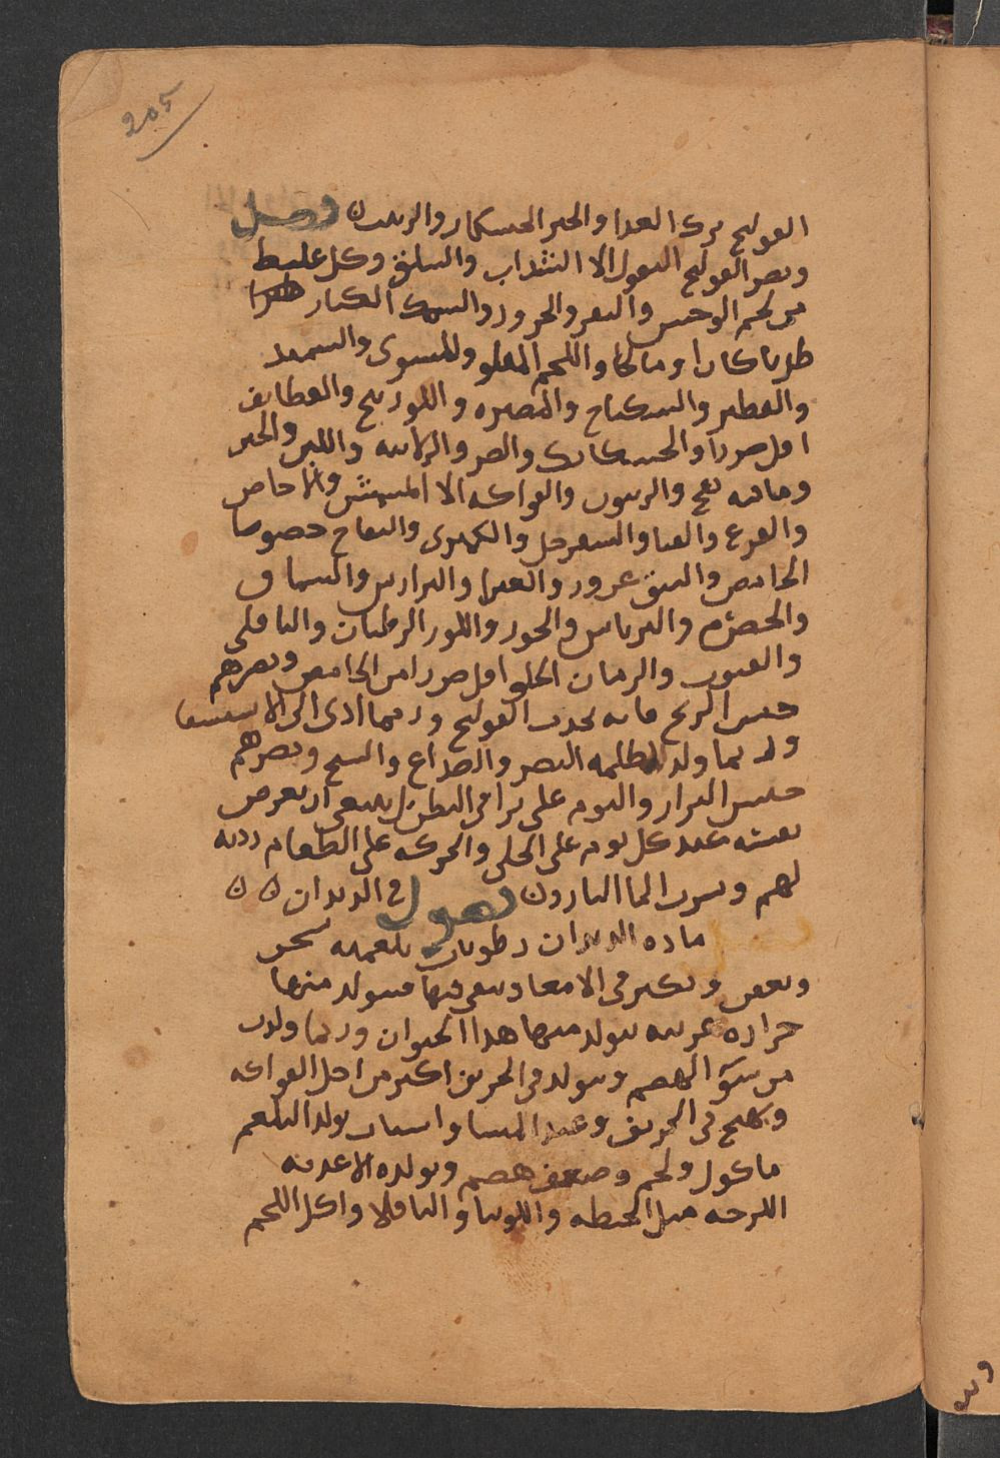 205
القولنج ترك الغدا والخبز الخشكار والزيت ن فصل
ويضر القولنج البقول الا الشداب والسلق وكل غليظ
من لحم الوحش والبقر والجزور والسمك الكبار
طريا كان او مالحا واللحم المقلو والمشوى والسميد
والفطير والسكباج والمضيره واللوزينج والقطايف
اقل ضررا والخشكنانك والمصر والرلابيه واللبن والجبن
وما فيه نفخ والزيتون والفواكه الا المشمش والاجاص
والقرع والقثا والسفرجل والكمثرى والتفاح خصوصا
الحامض والنبق والزعرور والغبيرا والسماق
والحصرم والريباس والجوز واللوز الرطبان والباقلى
والعنب والرمان الحلو اقل ضررا من الحامض ويضرهم
حبس الريح فانه يحدث القولنج وربما ادى الى الاستسقا
وربما ولد ظلمه البصر والصداع ويضرهم
حبس البراز والنوم على براز فى البطن بل ينبغى ان يعرض
نفسه عند كل نوم على الخلى والحركه على الطعام رديه
لهم وشرب الما البارد ن القول فى الديدان ن ن
ماده الديدان رطوبات بلغميه تسخن
وتعفن وتكثر فى الامعا وتبقى فيها فيتولد منها
حراره غريبه يتولد منها هدا الحيوان وربما ولدت
من سو الهضم ويتولد فى الخريف اكثر من اجل الفواكه
ويهيج فى الخريف وعند المسا واسباب تولد البلغم
ماكول ولحم وضعف هضم وتولده الاغديه
اللزجه مثل الحنطه واللوبيا والباقلا واكل اللحم